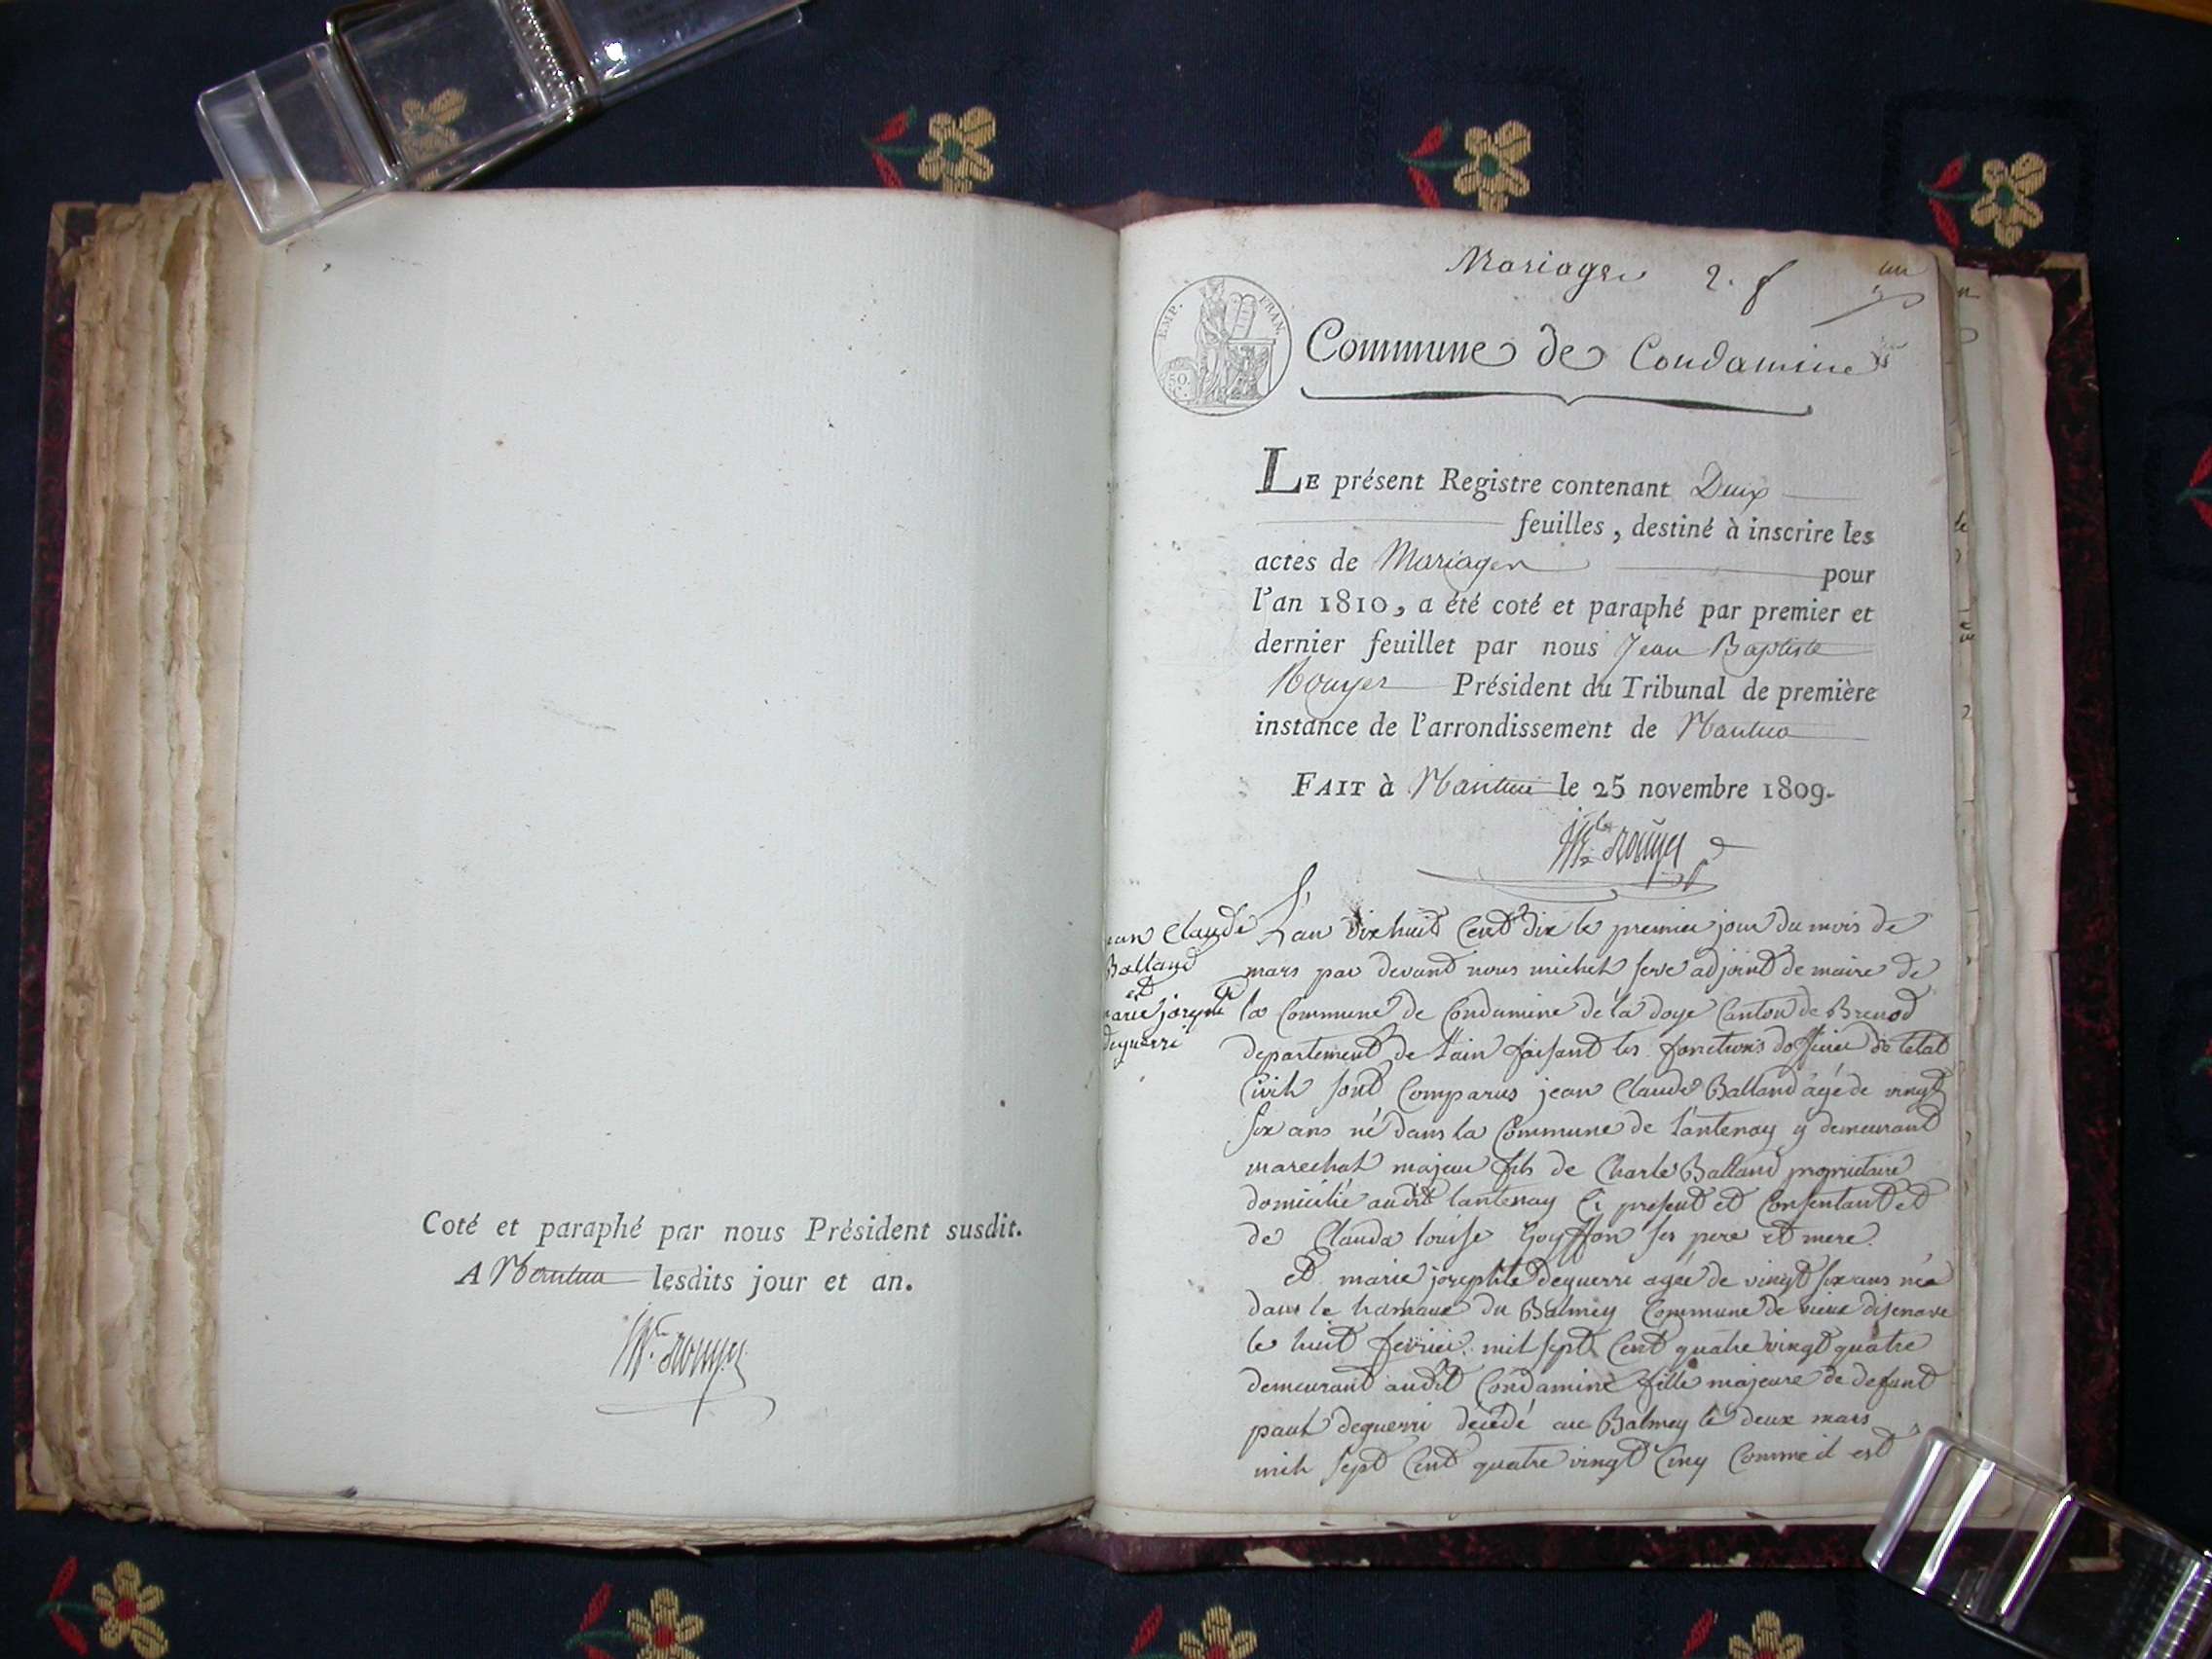 Coté et paraphé par nous Président susdit.
A Nantua lesdits jour et an.
Mariages 2. f
un
EMP. FRAN.
50. C.
Commune de Condamine
LE présent Registre contenant Deux
feuilles, destiné à inscrire les
actes de Mariages pour
l'an 1810, a été coté et paraphé par premier et
dernier feuillet par nous Jean Baptiste
Rouyer Président du Tribunal de première
instance de l'arrondissement de Nantua
FAIT à Nantua le 25 novembre 1809.
rouyer
Claude
Balland
et
josephte
deguerri
L'an dix huit Cent dix le premier jour du mois de
mars par devant nous michel serve adjoint de maire de
la Commune de Condamine de la doye Canton de Brenod
departement de l'ain faisant les fonctions dofficier de letat
Civil sont Comparus jean Claude Balland âgé de vingt
six ans né dans la Commune de Lantenay y demeurant
marechal majeur fils de Charle Balland proprietaire
domicilié audit lantenay Ci present et Consentant et
de Clauda louise Goyffon ses pere et mere.
et marie josephte deguerri agée de vingt six ans née
dans le hamaux du Balmey Commune de vieux disenave
le huit fevrier mil sept Cent quatre vingt quatre
demeurant audit Condamine fille majeure de defunt
paul deguerri decédé au Balmey le deux mars
mil sept Cent quatre vingt Cinq Comme il est